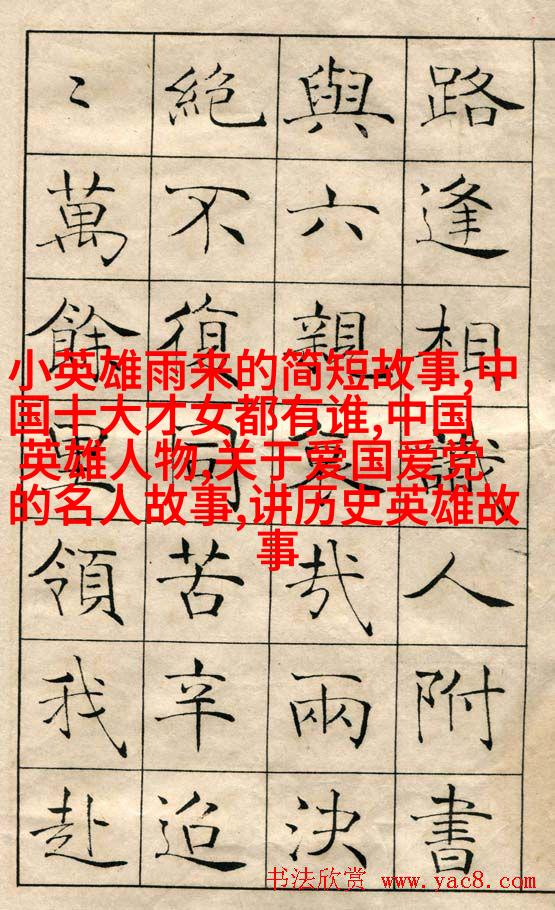 路逢相識人附書
與六親哀哉兩決
絕不復同苦辛迢
〻萬餘里領我赴
小英雄雨来的简短故事,中
国十大才女都有谁,中国
英雄人物,关于爱国爱党
的名人故事,讲历史英雄故
事
书法欣赏 www.yac8.com